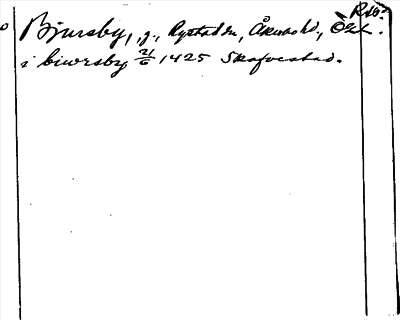 Bjursby, g., Rystad sn, Åkerbo hd, Ögtl. RAp.
i biwrsby 21/6 1425 Skafvestad.